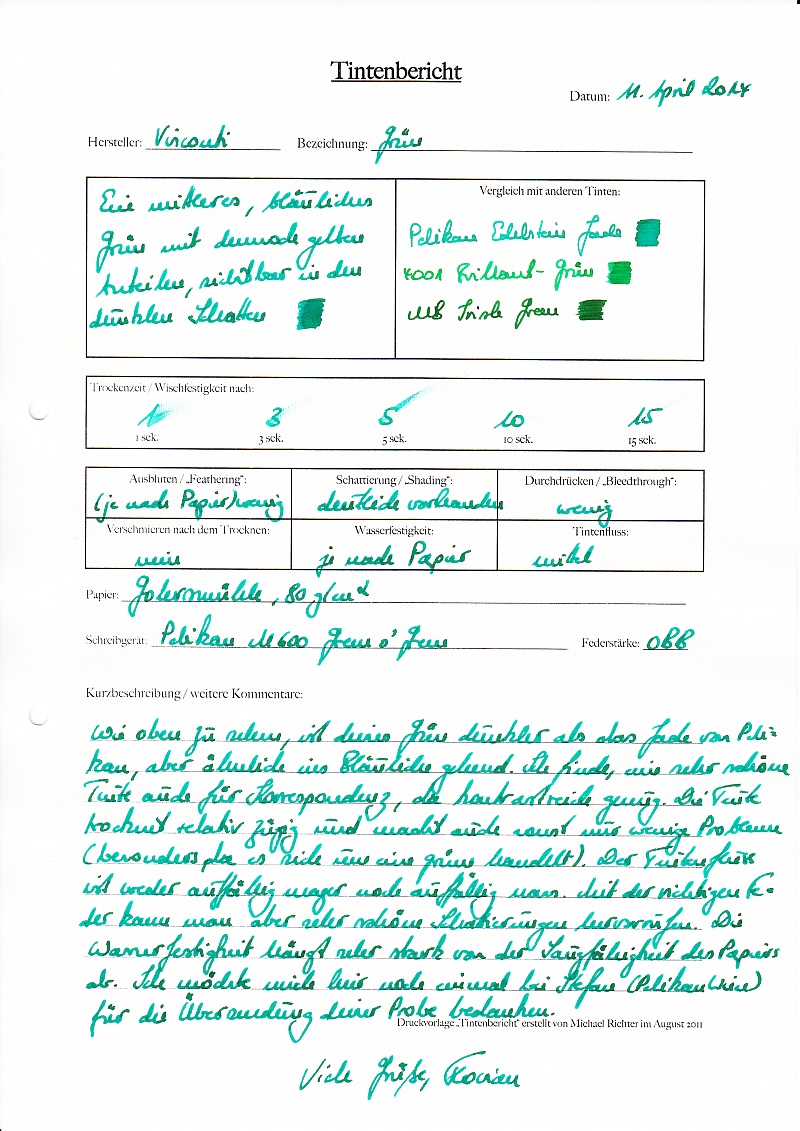 Tintenbericht
Datum: 11. April 2014
Hersteller: Visconti Bezeichnung: Grün
Ein mittleres, bläuliches
Grün mit dennoch gelben
Anteilen, sichtbar in den
dunklen Schatten
Vergleich mit anderen Tinten:
Pelikan Edelstein Jade
4001 Brillant-Grün
MB Irish Green
Trockenzeit / Wischfestigkeit nach:
1 3 5 10 15
1 sek. 3 sek. 5 sek. 10 sek. 15 sek.
Ausbluten / „Feathering": Schattierung / „Shading": Durchdrücken / „Bleedthrough":
(je nach Papier) wenig deutlich vorhanden wenig
Verschmieren nach dem Trocknen: Wasserfestigkeit: Tintenfluss:
nein je nach Papier mittel
Papier: 80 g/cm²
Schreibgerät: Pelikan M600 Green o' Green Federstärke: OBB
Kurzbeschreibung / weitere Kommentare:
Wie oben zu sehen, ist dieses Grün dunkler als das Jade von Peli-
kan, aber ähnlich ins Bläuliche gehend. Ich finde, eine sehr schöne
Tinte auch für Korrespondenz, da kontrastreich genug. Die Tinte
trocknet relativ zügig und macht auch sonst nur wenige Probleme
(besonders da es sich um eine grüne handelt). Der Tintenfluss
ist weder auffällig mager noch auffällig nass. Mit der richtigen Fe-
der kann man aber sehr schöne Schattierungen hervorrufen. Die
Wasserfestigkeit hängt sehr stark von der Saugfähigkeit des Papiers
ab. Ich möchte mich hier noch einmal bei Stefan (Pelikan)
für die Übersendung dieser Probe bedanken.
Druckvorlage „Tintenbericht" erstellt von Michael Richter im August 2011
Viele Grüße, Florian